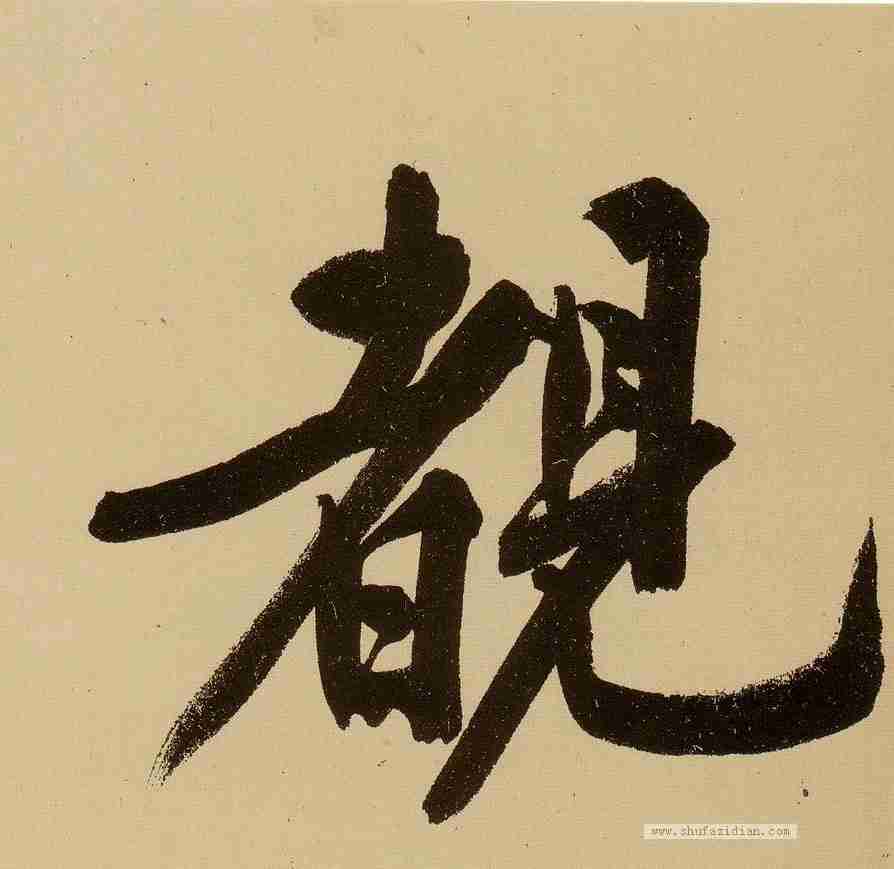 覩
www.shufazidian.com